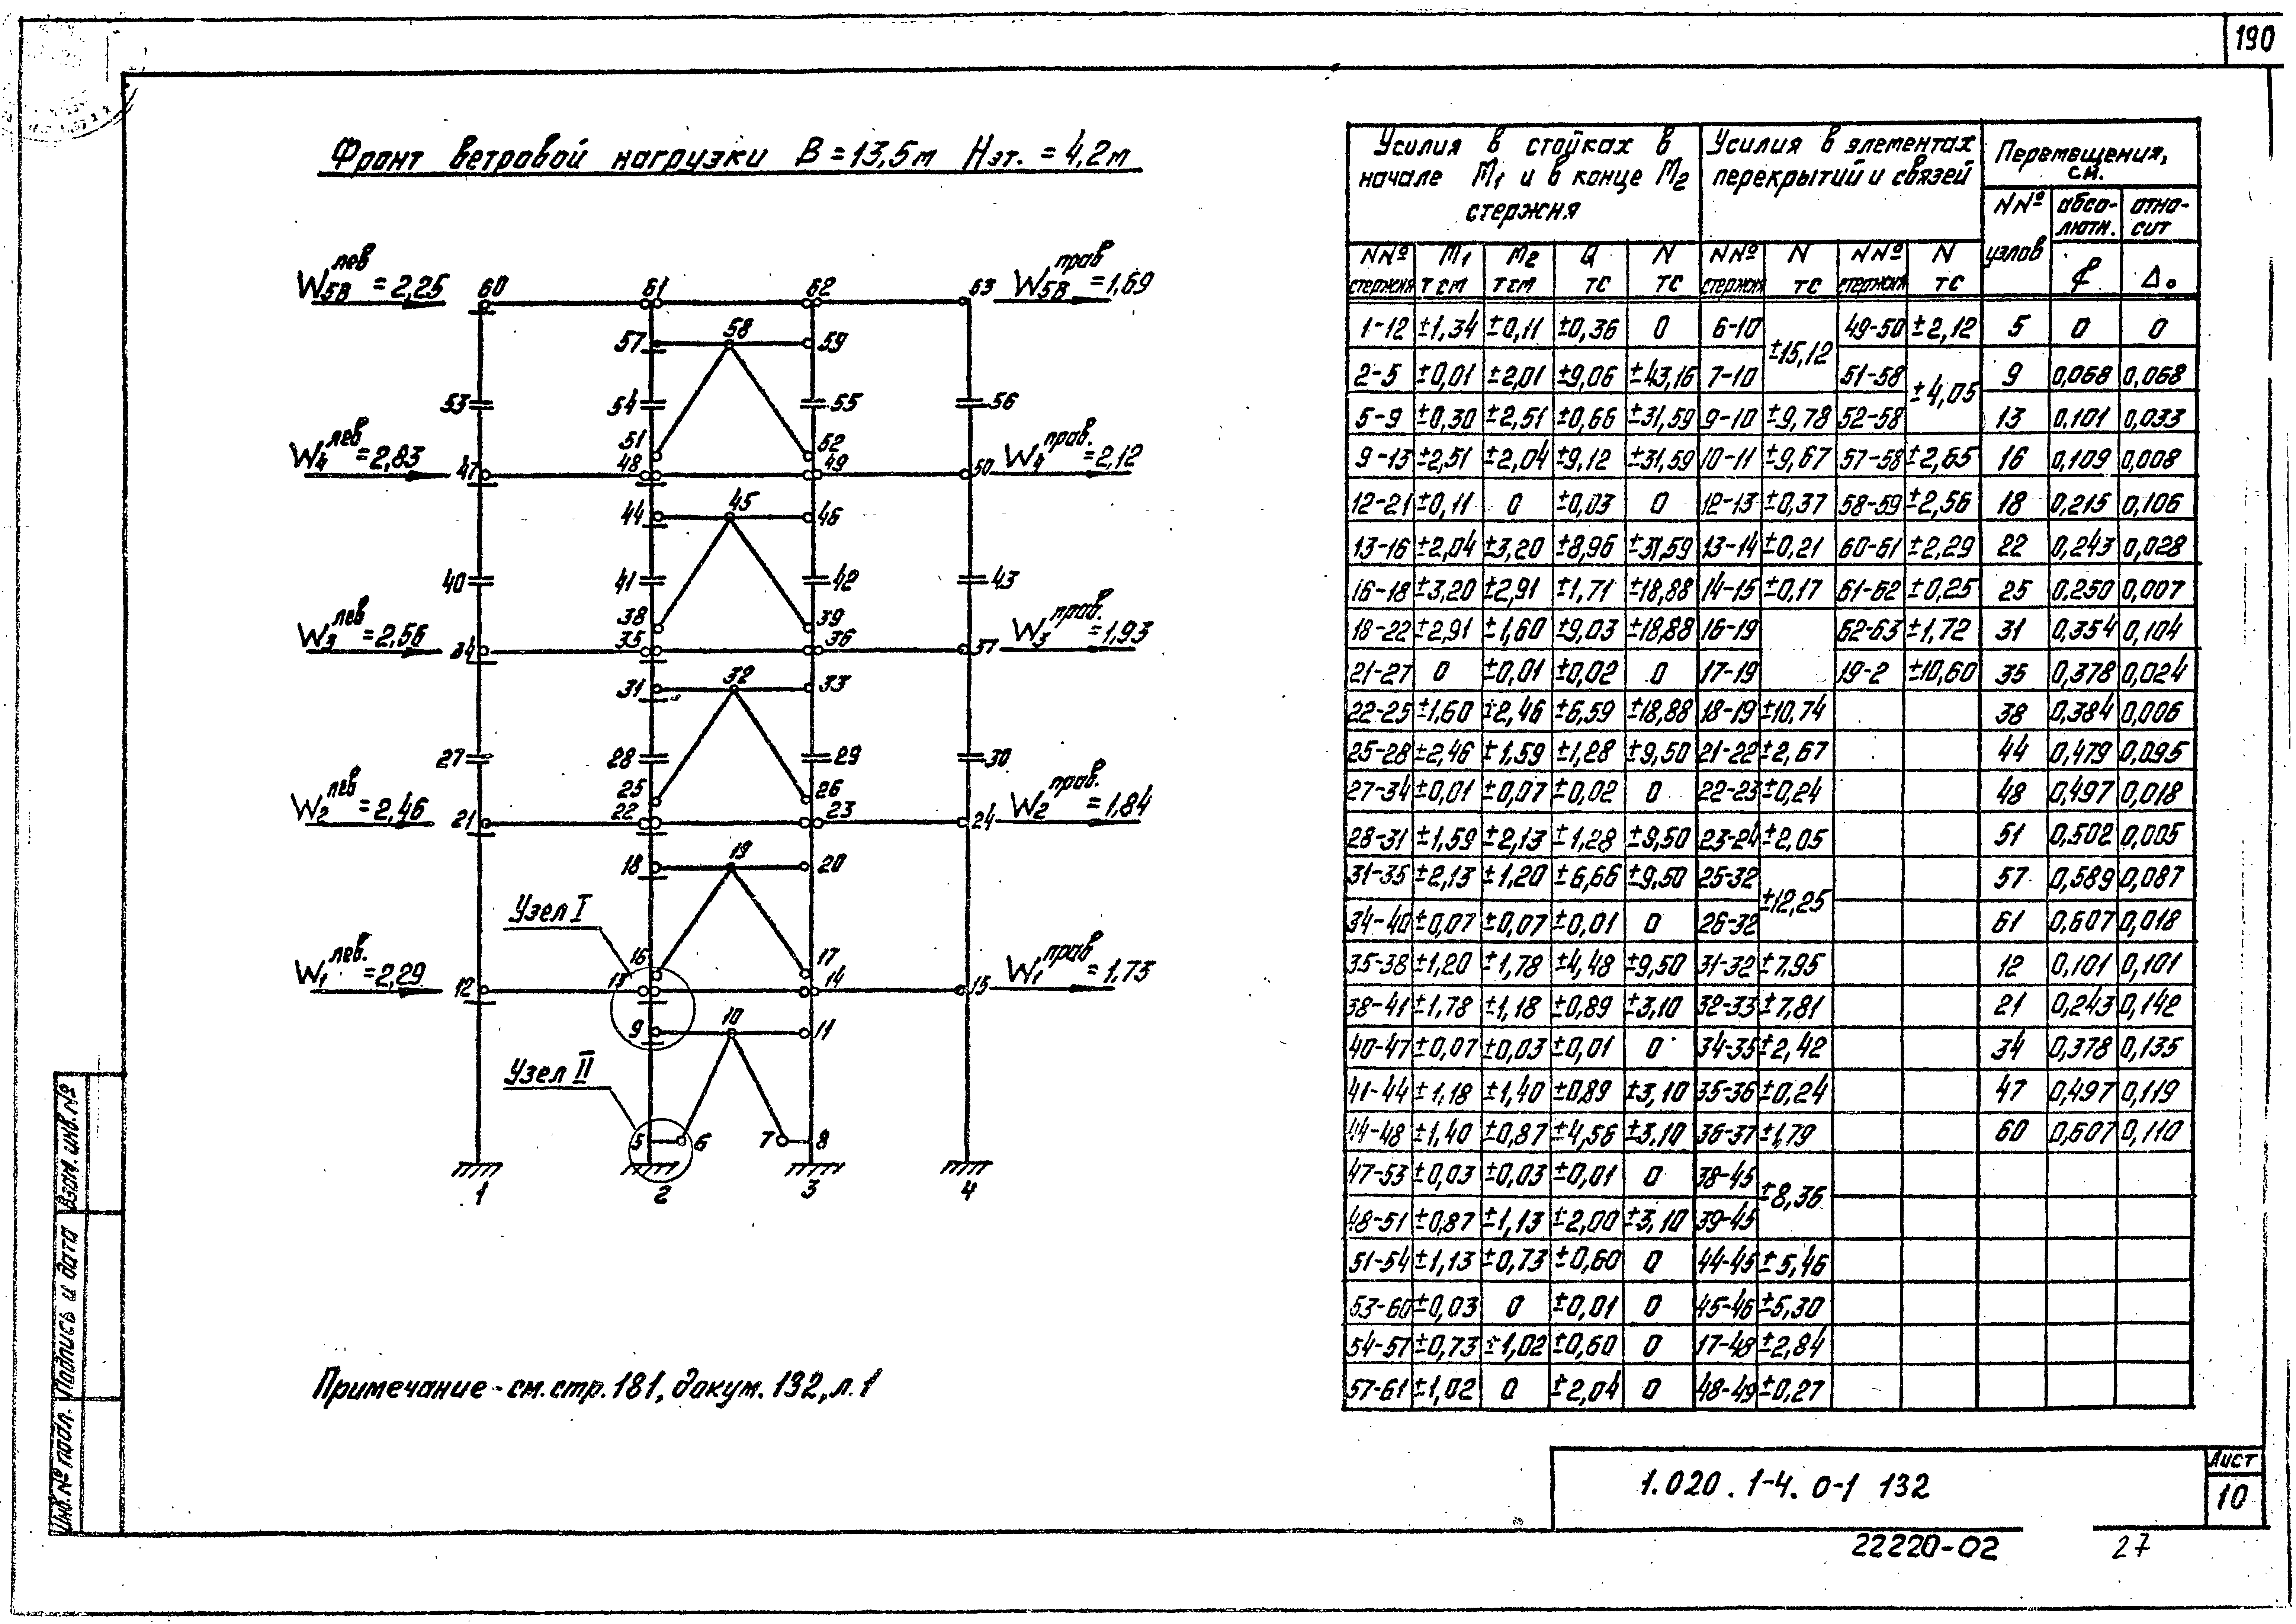 190
Фронт ветровой нагрузки B=13,5м Hэт.=4,2м
W5в лев =2,25
60
61
62
63
W5в прав =1,69
57
58
59
53
54
55
56
51
52
W4 лев =2,83
47
48
49
50
W4 прав. =2,12
44
45
46
40
41
42
43
38
39
W3 лев =2,56
34
35
36
37
W3 прав. =1,93
31
32
33
27
28
29
30
25
26
W2 лев =2,46
21
22
23
24
W2 прав. =1,84
18
19
20
Узел I
16
17
W1 лев. =2,29
12
13
14
15
W1 прав =1,73
9
10
11
Узел II
5
6
7
8
1
2
3
4
Примечание - см. стр. 181, докум. 132, л. 1
Усилия в стойках в начале M1 и в конце M2 стержня
Усилия в элементах перекрытий и связей
Перемещения, см.
NNº стержня M1 тсм M2 тсм Q тс N тс NNº стержня N тс NNº стержня N тс NNº узлов абсо-лютн. относит Δо
1-12 ±1,34 ±0,11 ±0,36 0 6-10 ±15,12 49-50 ±2,12 5 0 0
2-5 ±0,01 ±2,01 ±9,06 ±43,16 7-10 51-58 ±4,05 9 0,068 0,068
5-9 ±0,30 ±2,51 ±0,66 ±31,59 9-10 ±9,78 52-58 13 0,101 0,033
9-13 ±2,51 ±2,04 ±9,12 ±31,59 10-11 ±9,67 57-58 ±2,65 16 0,109 0,008
12-21 ±0,11 0 ±0,03 0 12-13 ±0,37 58-59 ±2,56 18 0,215 0,106
13-16 ±2,04 ±3,20 ±8,96 ±31,59 13-14 ±0,21 60-61 ±2,29 22 0,243 0,028
16-18 ±3,20 ±2,91 ±1,71 ±18,88 14-15 ±0,17 61-62 ±0,25 25 0,250 0,007
18-22 ±2,91 ±1,60 ±9,03 ±18,88 16-19 62-63 ±1,72 31 0,354 0,104
21-27 0 ±0,01 ±0,02 0 17-19 19-2 ±10,60 35 0,378 0,024
22-25 ±1,60 ±2,46 ±6,59 ±18,88 18-19 ±10,74 38 0,384 0,006
25-28 ±2,46 ±1,59 ±1,28 ±9,50 21-22 ±2,67 44 0,479 0,095
27-34 ±0,01 ±0,07 ±0,02 0 22-23 ±0,24 48 0,497 0,018
28-31 ±1,59 ±2,13 ±1,28 ±9,50 23-24 ±2,05 51 0,502 0,005
31-35 ±2,13 ±1,20 ±6,66 ±9,50 25-32 ±12,25 57 0,589 0,087
34-40 ±0,07 ±0,07 ±0,01 0 26-32 61 0,607 0,018
35-38 ±1,20 ±1,78 ±4,48 ±9,50 31-32 ±7,95 12 0,101 0,101
38-41 ±1,78 ±1,18 ±0,89 ±3,10 32-33 ±7,81 21 0,243 0,142
40-47 ±0,07 ±0,03 ±0,01 0 34-35 ±2,42 34 0,378 0,135
41-44 ±1,18 ±1,40 ±0,89 ±3,10 35-36 ±0,24 47 0,497 0,119
44-48 ±1,40 ±0,87 ±4,56 ±3,10 36-37 ±1,79 60 0,607 0,110
47-53 ±0,03 ±0,03 ±0,01 0 38-45 ±8,36
48-51 ±0,87 ±1,13 ±2,00 ±3,10 39-45
51-54 ±1,13 ±0,73 ±0,60 0 44-45 ±5,46
53-60 ±0,03 0 ±0,01 0 45-46 ±5,30
54-57 ±0,73 ±1,02 ±0,60 0 17-48 ±2,84
57-61 ±1,02 0 ±2,04 0 48-49 ±0,27
Инв. № подл.
Подпись и дата
Взам. инв. №
1.020.1-4.0-1 132
Лист
10
22220-02
27